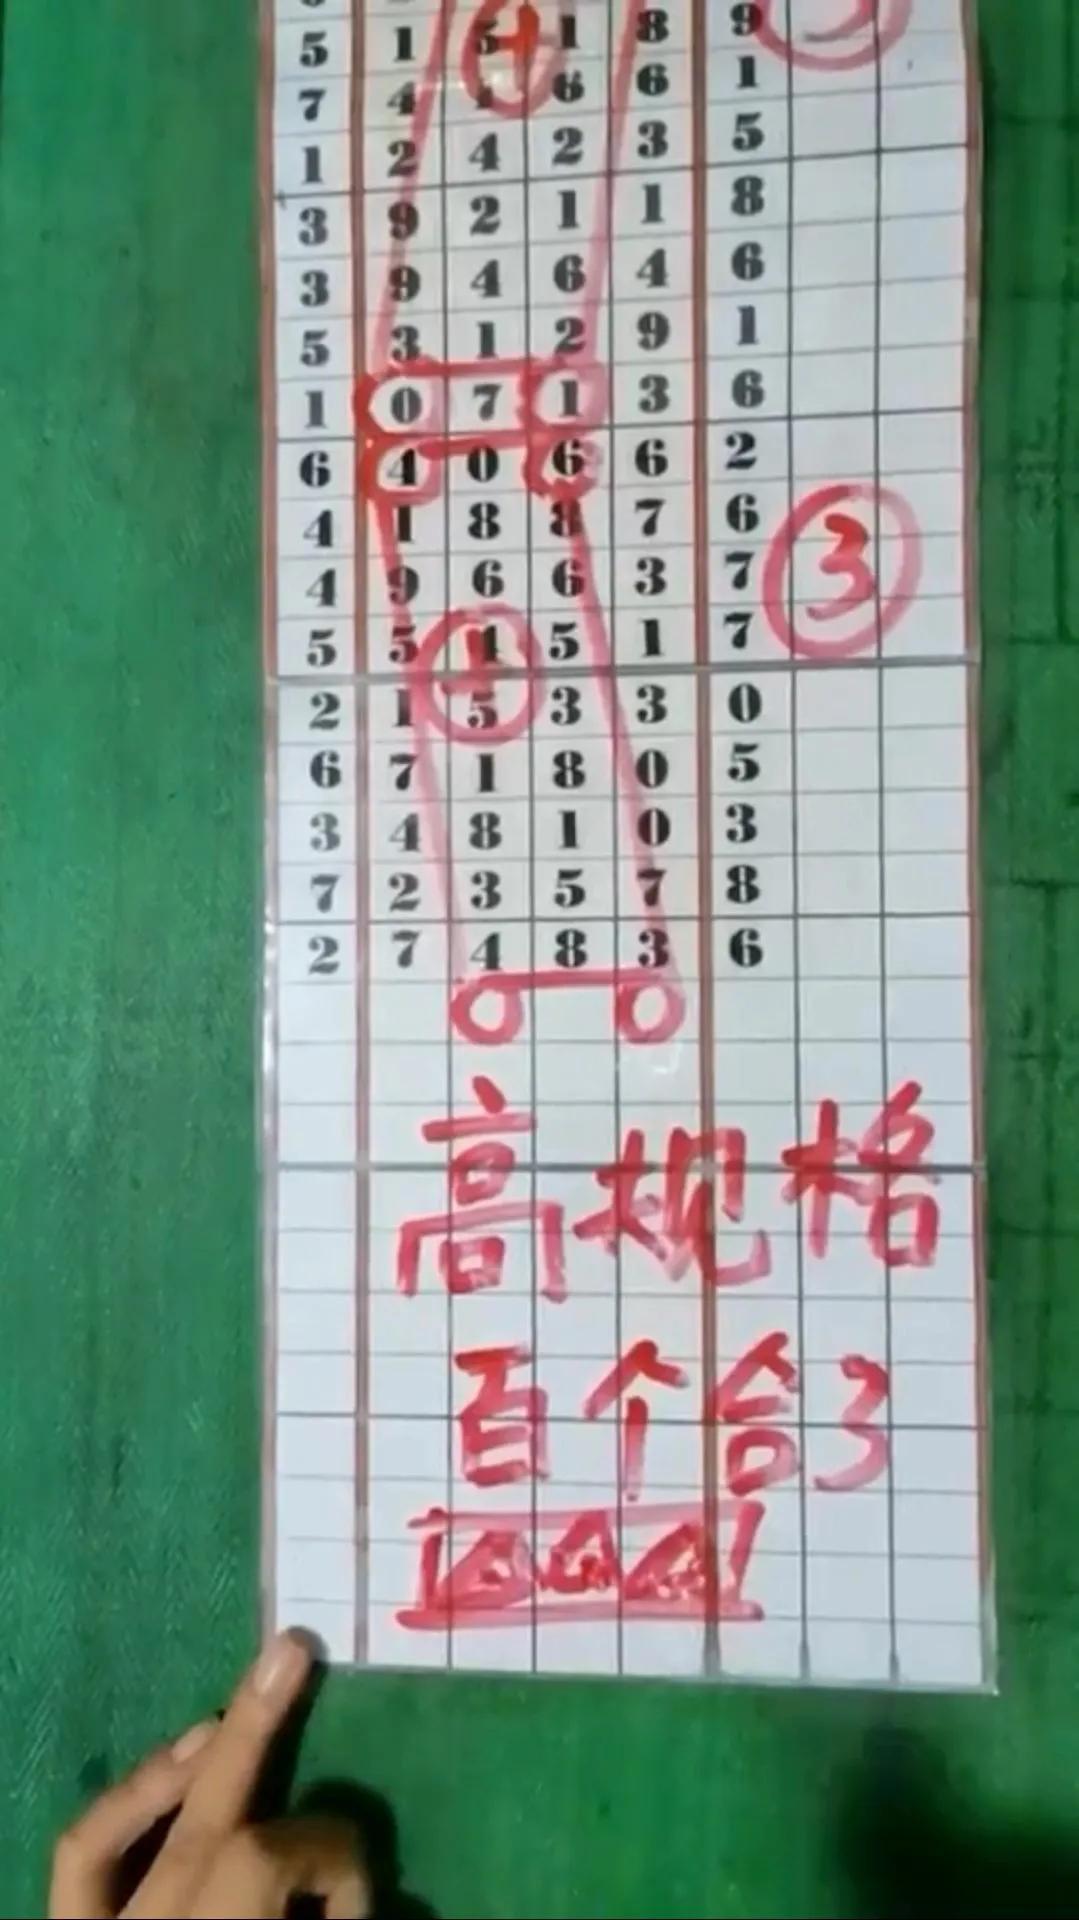 5 1 5 1 8 9 3
7 4 1 6 6 1
1 2 4 2 3 5
3 9 2 1 1 8
3 9 4 6 4 6
5 3 1 2 9 1
1 0 7 1 3 6
6 4 0 6 6 2
4 1 8 8 7 6
4 9 6 6 3 7 3
5 5 1 5 1 7
2 1 5 3 3 0
6 7 1 8 0 5
3 4 8 1 0 3
7 2 3 5 7 8
2 7 4 8 3 6
高规格
百个合3